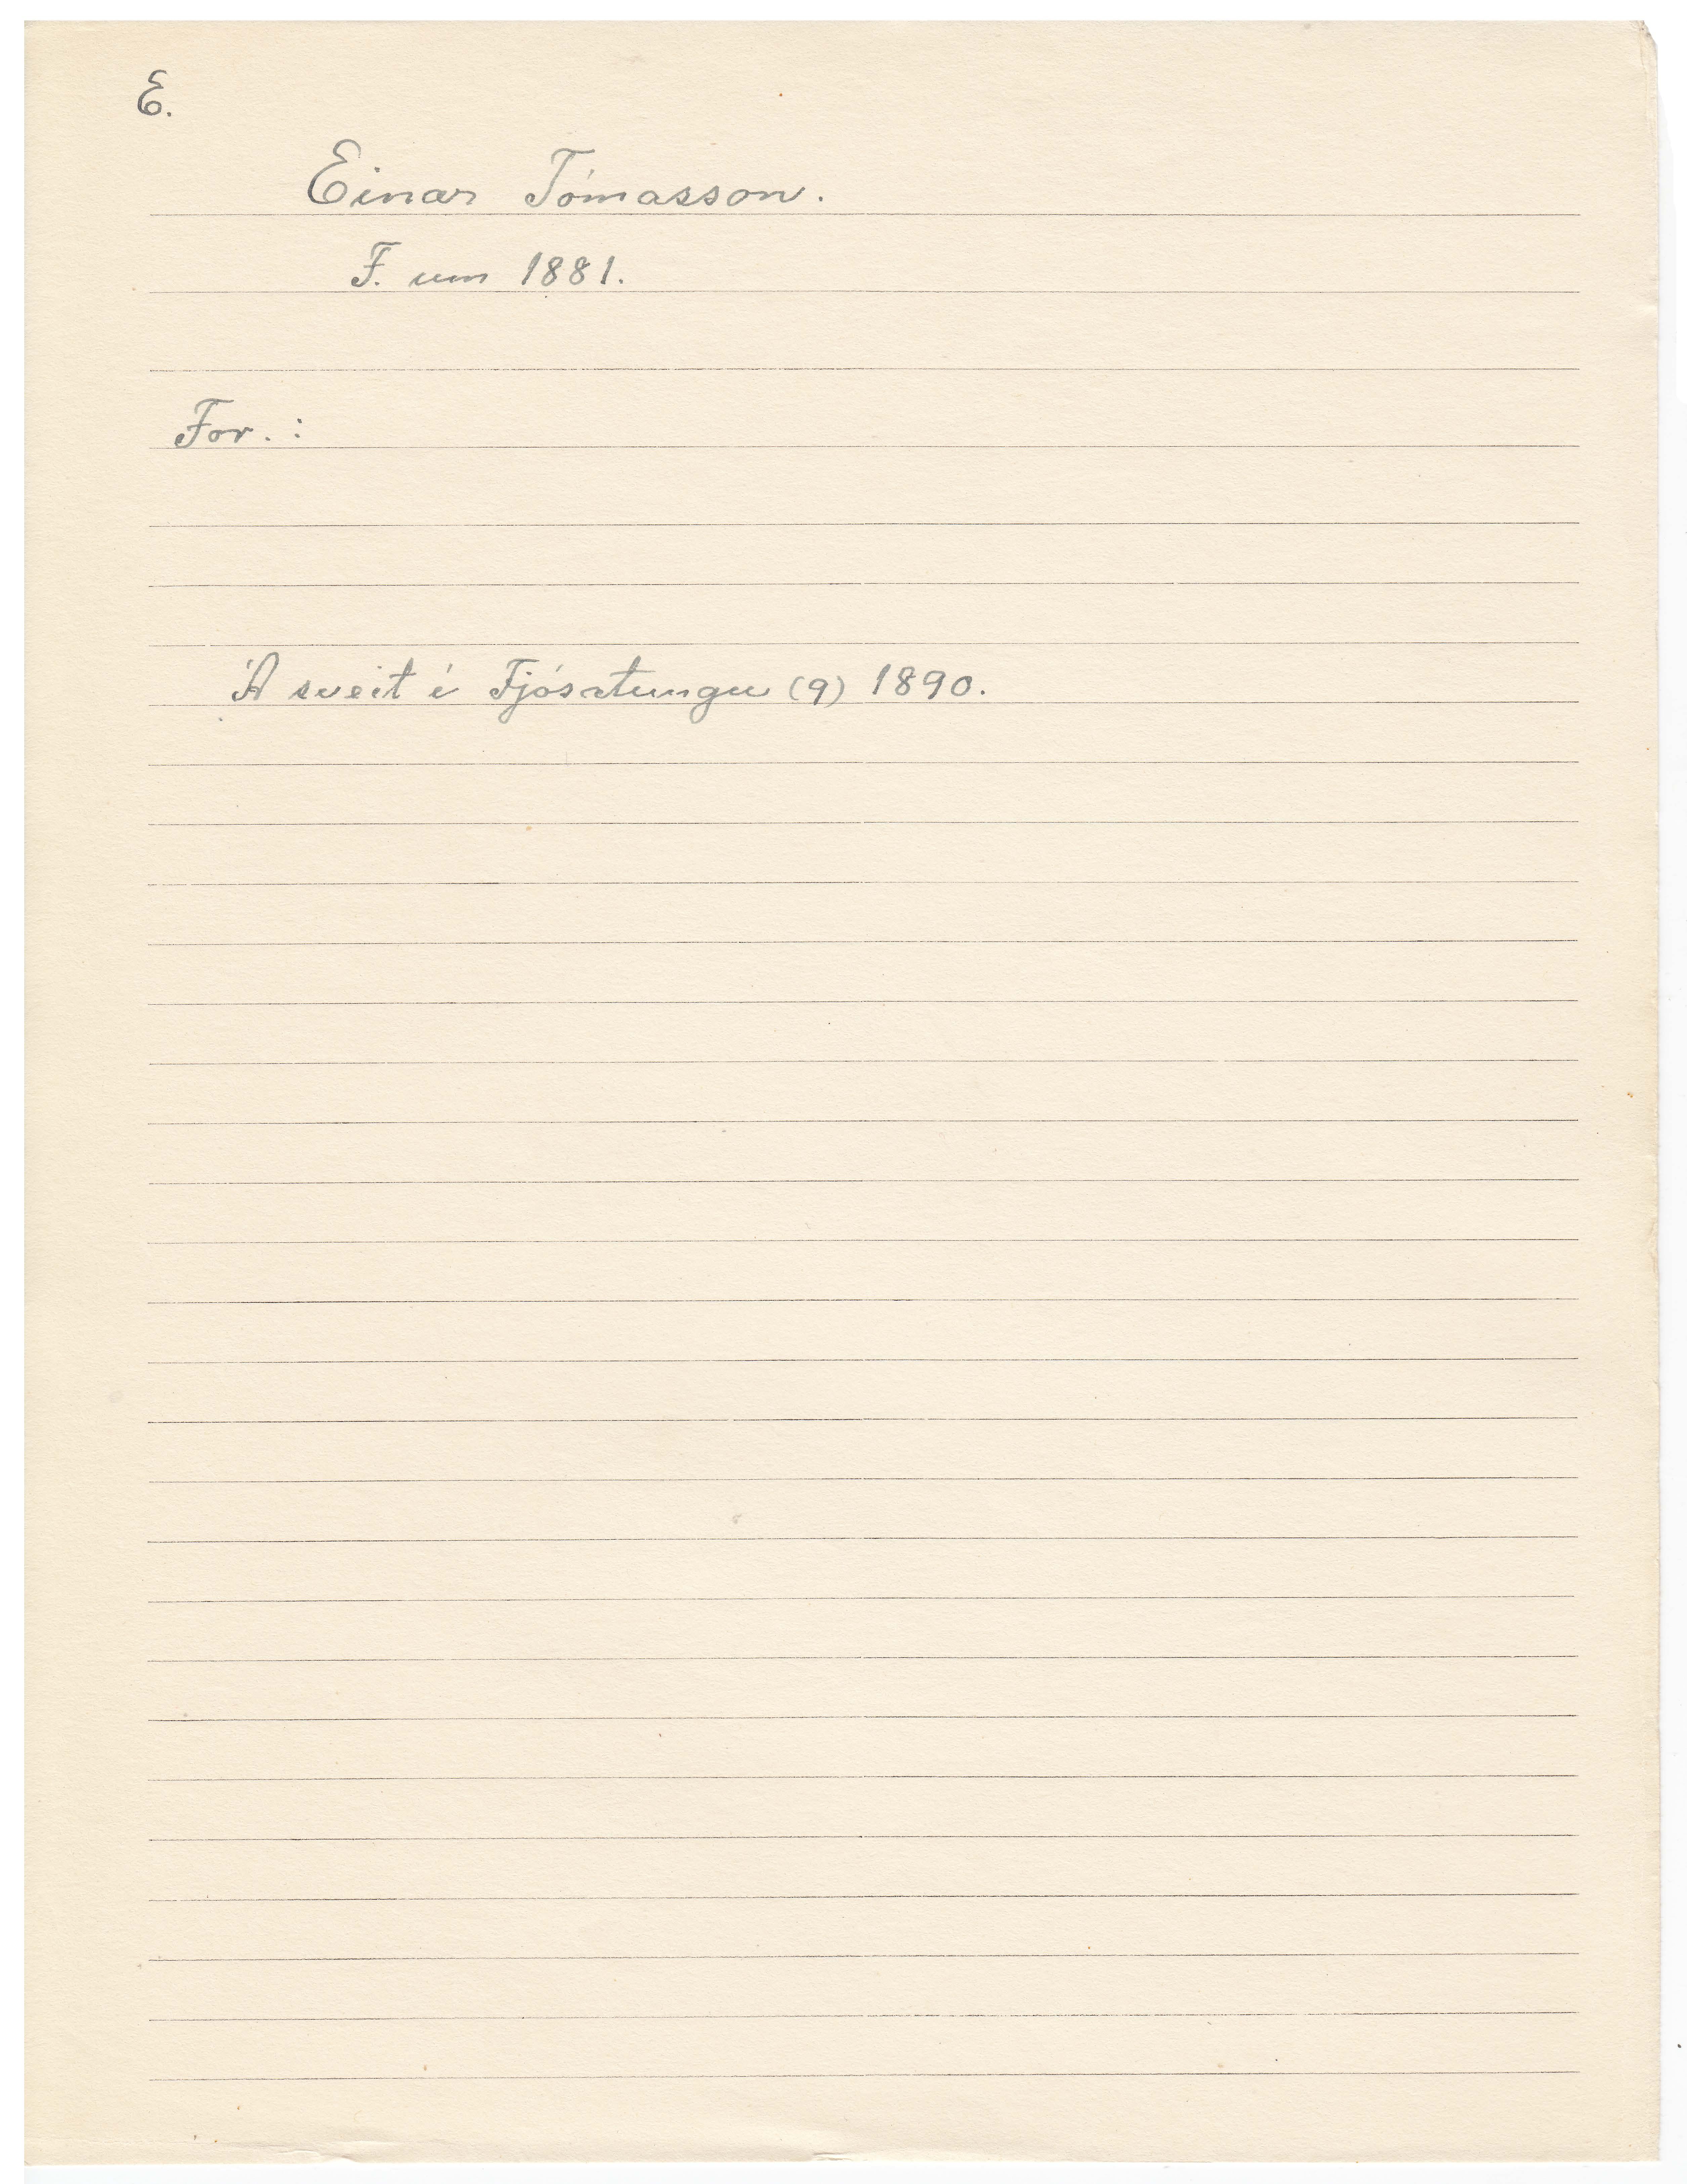 E.
Einar Tómasson.
F. um 1881.
For. :
Á sveit í Fjósatungu (9) 1890.